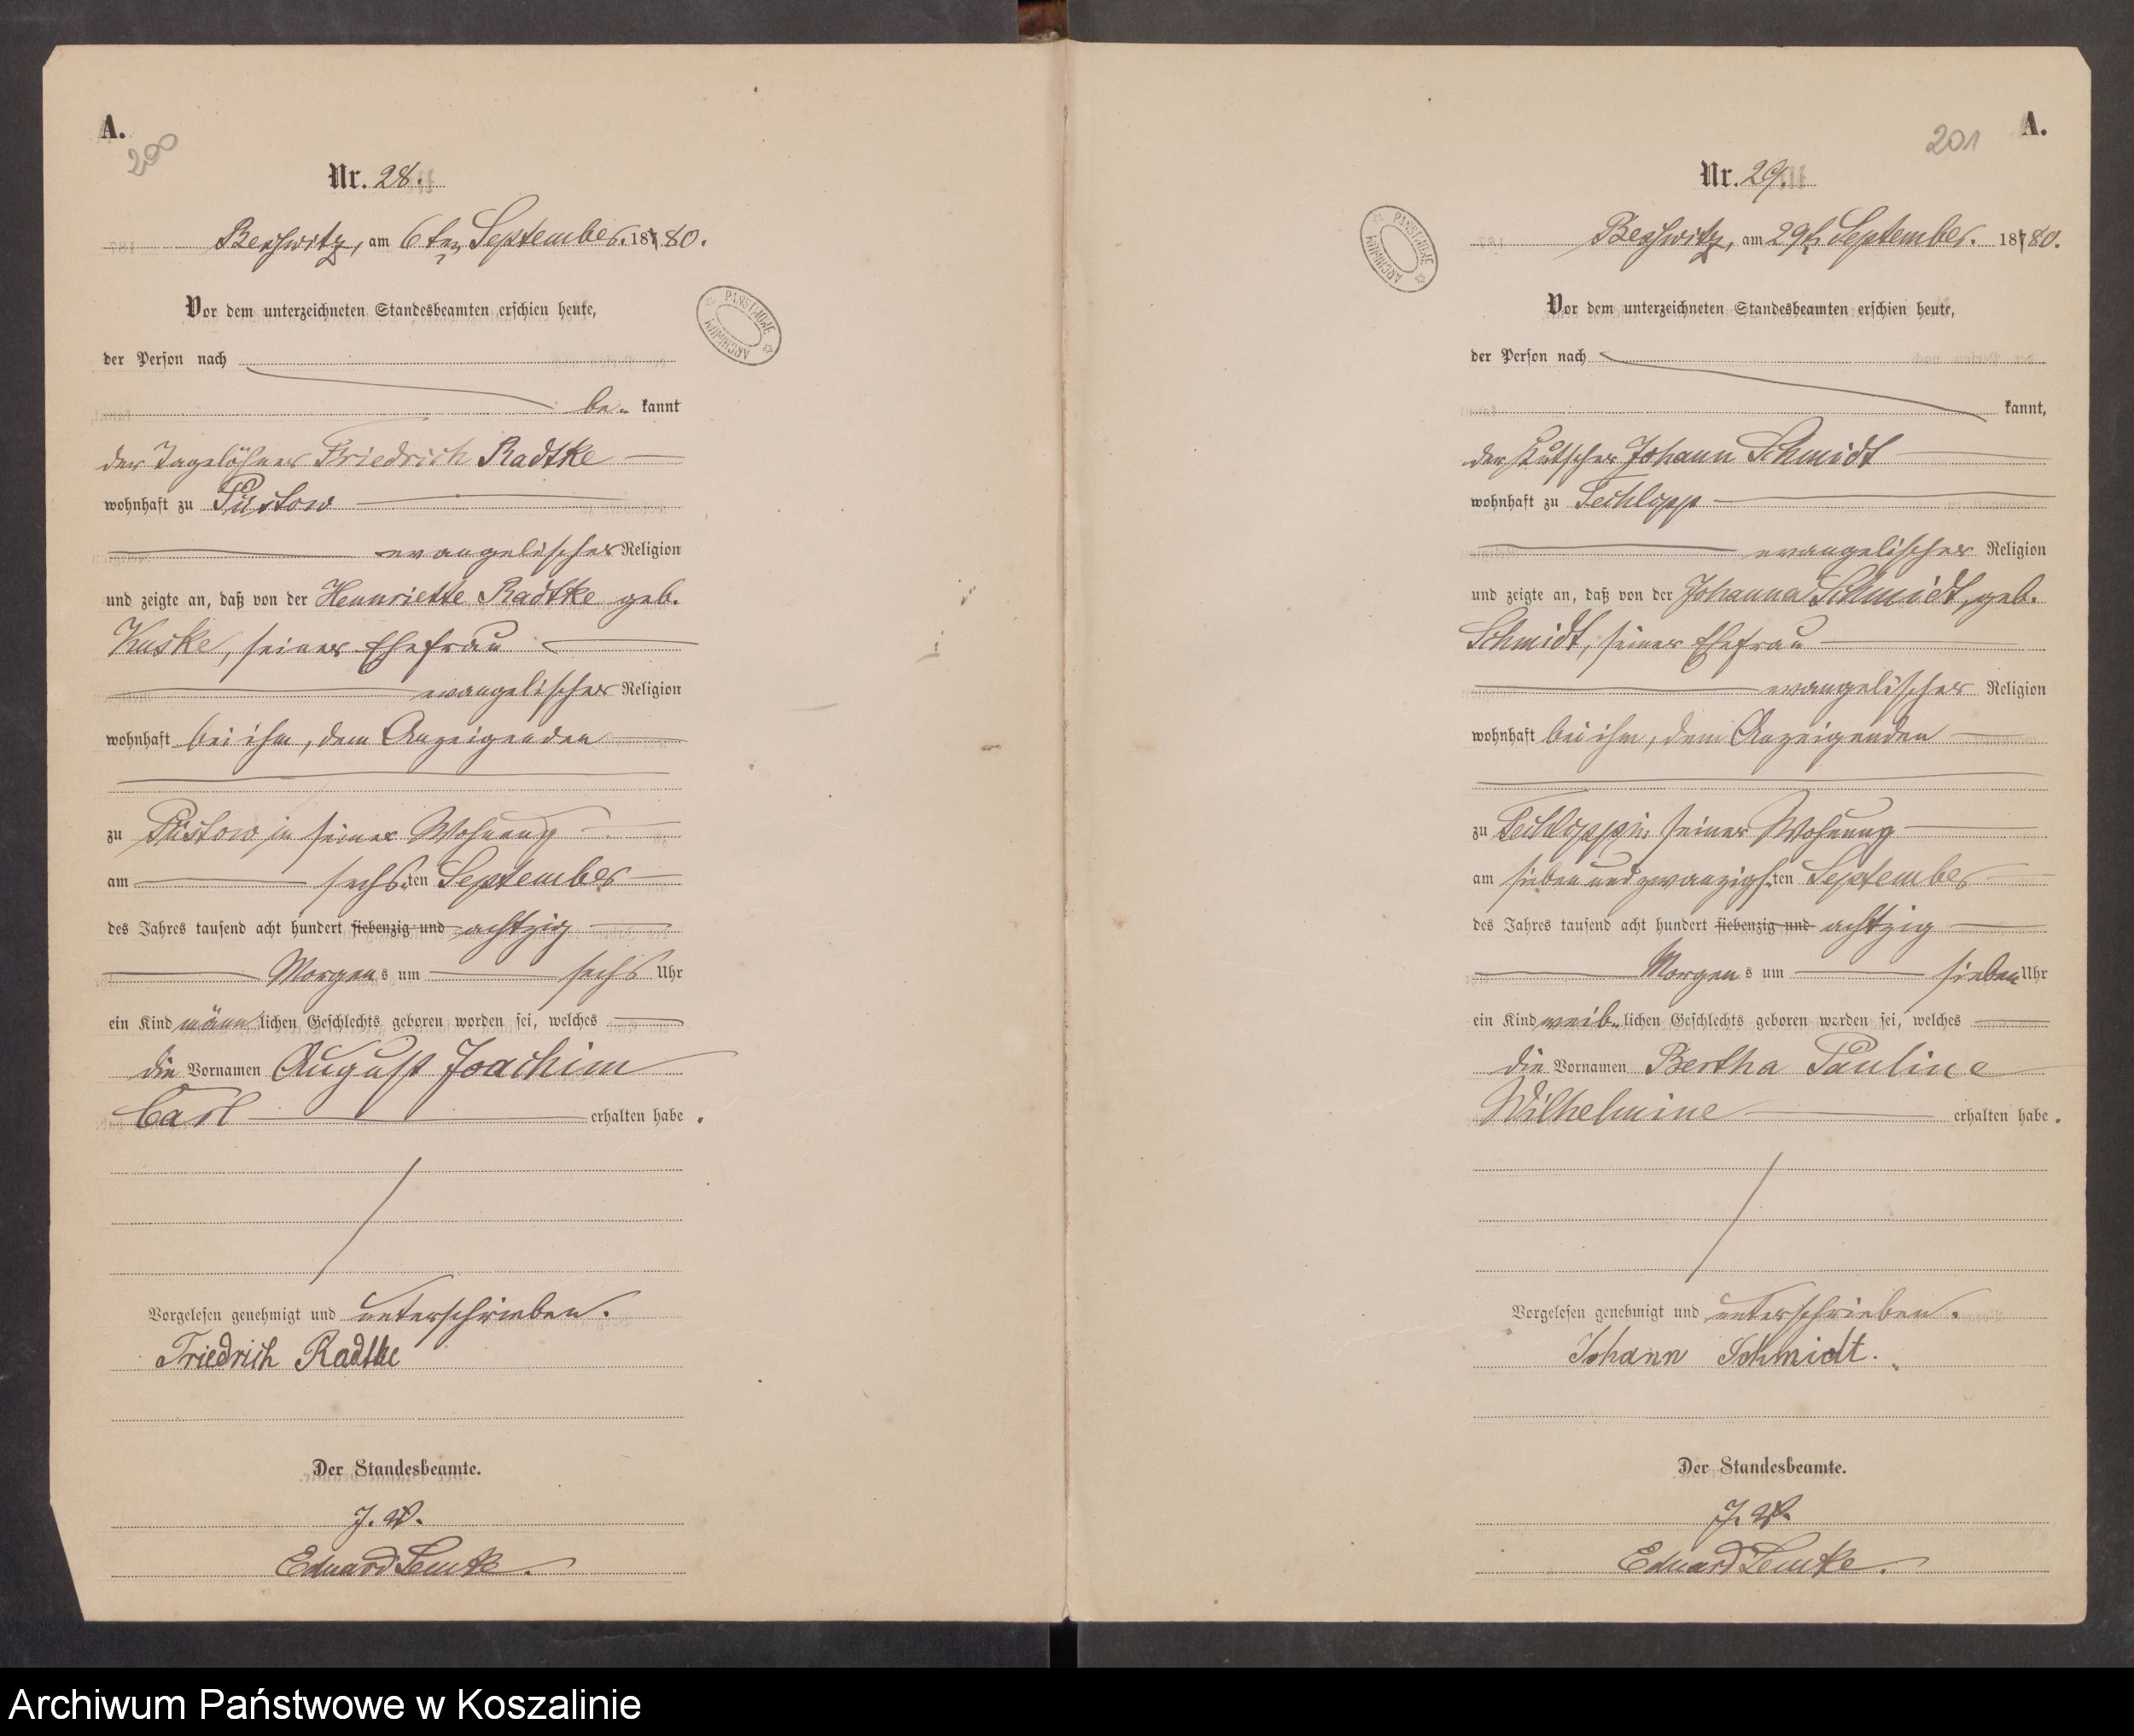 A.
200
Nr. 28.
Beßwitz, am 6ten September. 1880.
Vor dem unterzeichneten Standesbeamten erschien heute,
der Person nach
be- kannt
der Tagelöhner Friedrich Radtke
wohnhaft zu Püstow
evangelischer Religion
und zeigte an, daß von der Henriette Radtke geb.
Kuske, seiner Ehefrau
evangelischer Religion
wohnhaft bei ihm, dem Anzeigenden
zu Püstow in seiner Wohnung
am sechsten September
des Jahres tausend acht hundert siebenzig und achtzig
Morgens um sechs Uhr
ein Kind männlichen Geschlechts geboren worden sei, welches
die Vornamen August Joachim
Carl erhalten habe.
Vorgelesen genehmigt und unterschrieben.
Friedrich Radtke
Der Standesbeamte.
J. V.
Eduard Lemke.
PAŃSTWOWE ARCHIWUM
201
A.
Nr. 29.
Beßwitz, am 29t September. 1880.
Vor dem unterzeichneten Standesbeamten erschien heute,
der Person nach
kannt,
der Kutscher Johann Schmidt
wohnhaft zu Techlipp
evangelischer Religion
und zeigte an, daß von der Johanna Schmidt, geb.
Schmidt, seiner Ehefrau
evangelischer Religion
wohnhaft bei ihm, dem Anzeigenden
zu Techlipp in seiner Wohnung
am sieben und zwanzigsten September
des Jahres tausend acht hundert siebenzig und achtzig
Morgens um sieben Uhr
ein Kind weib-lichen Geschlechts geboren worden sei, welches
die Vornamen Bertha Pauline
Wilhelmine erhalten habe.
Vorgelesen genehmigt und unterschrieben.
Johann Schmidt.
Der Standesbeamte.
J. V.
Eduard Lemke.
PAŃSTWOWE ARCHIWUM
Archiwum Państwowe w Koszalinie